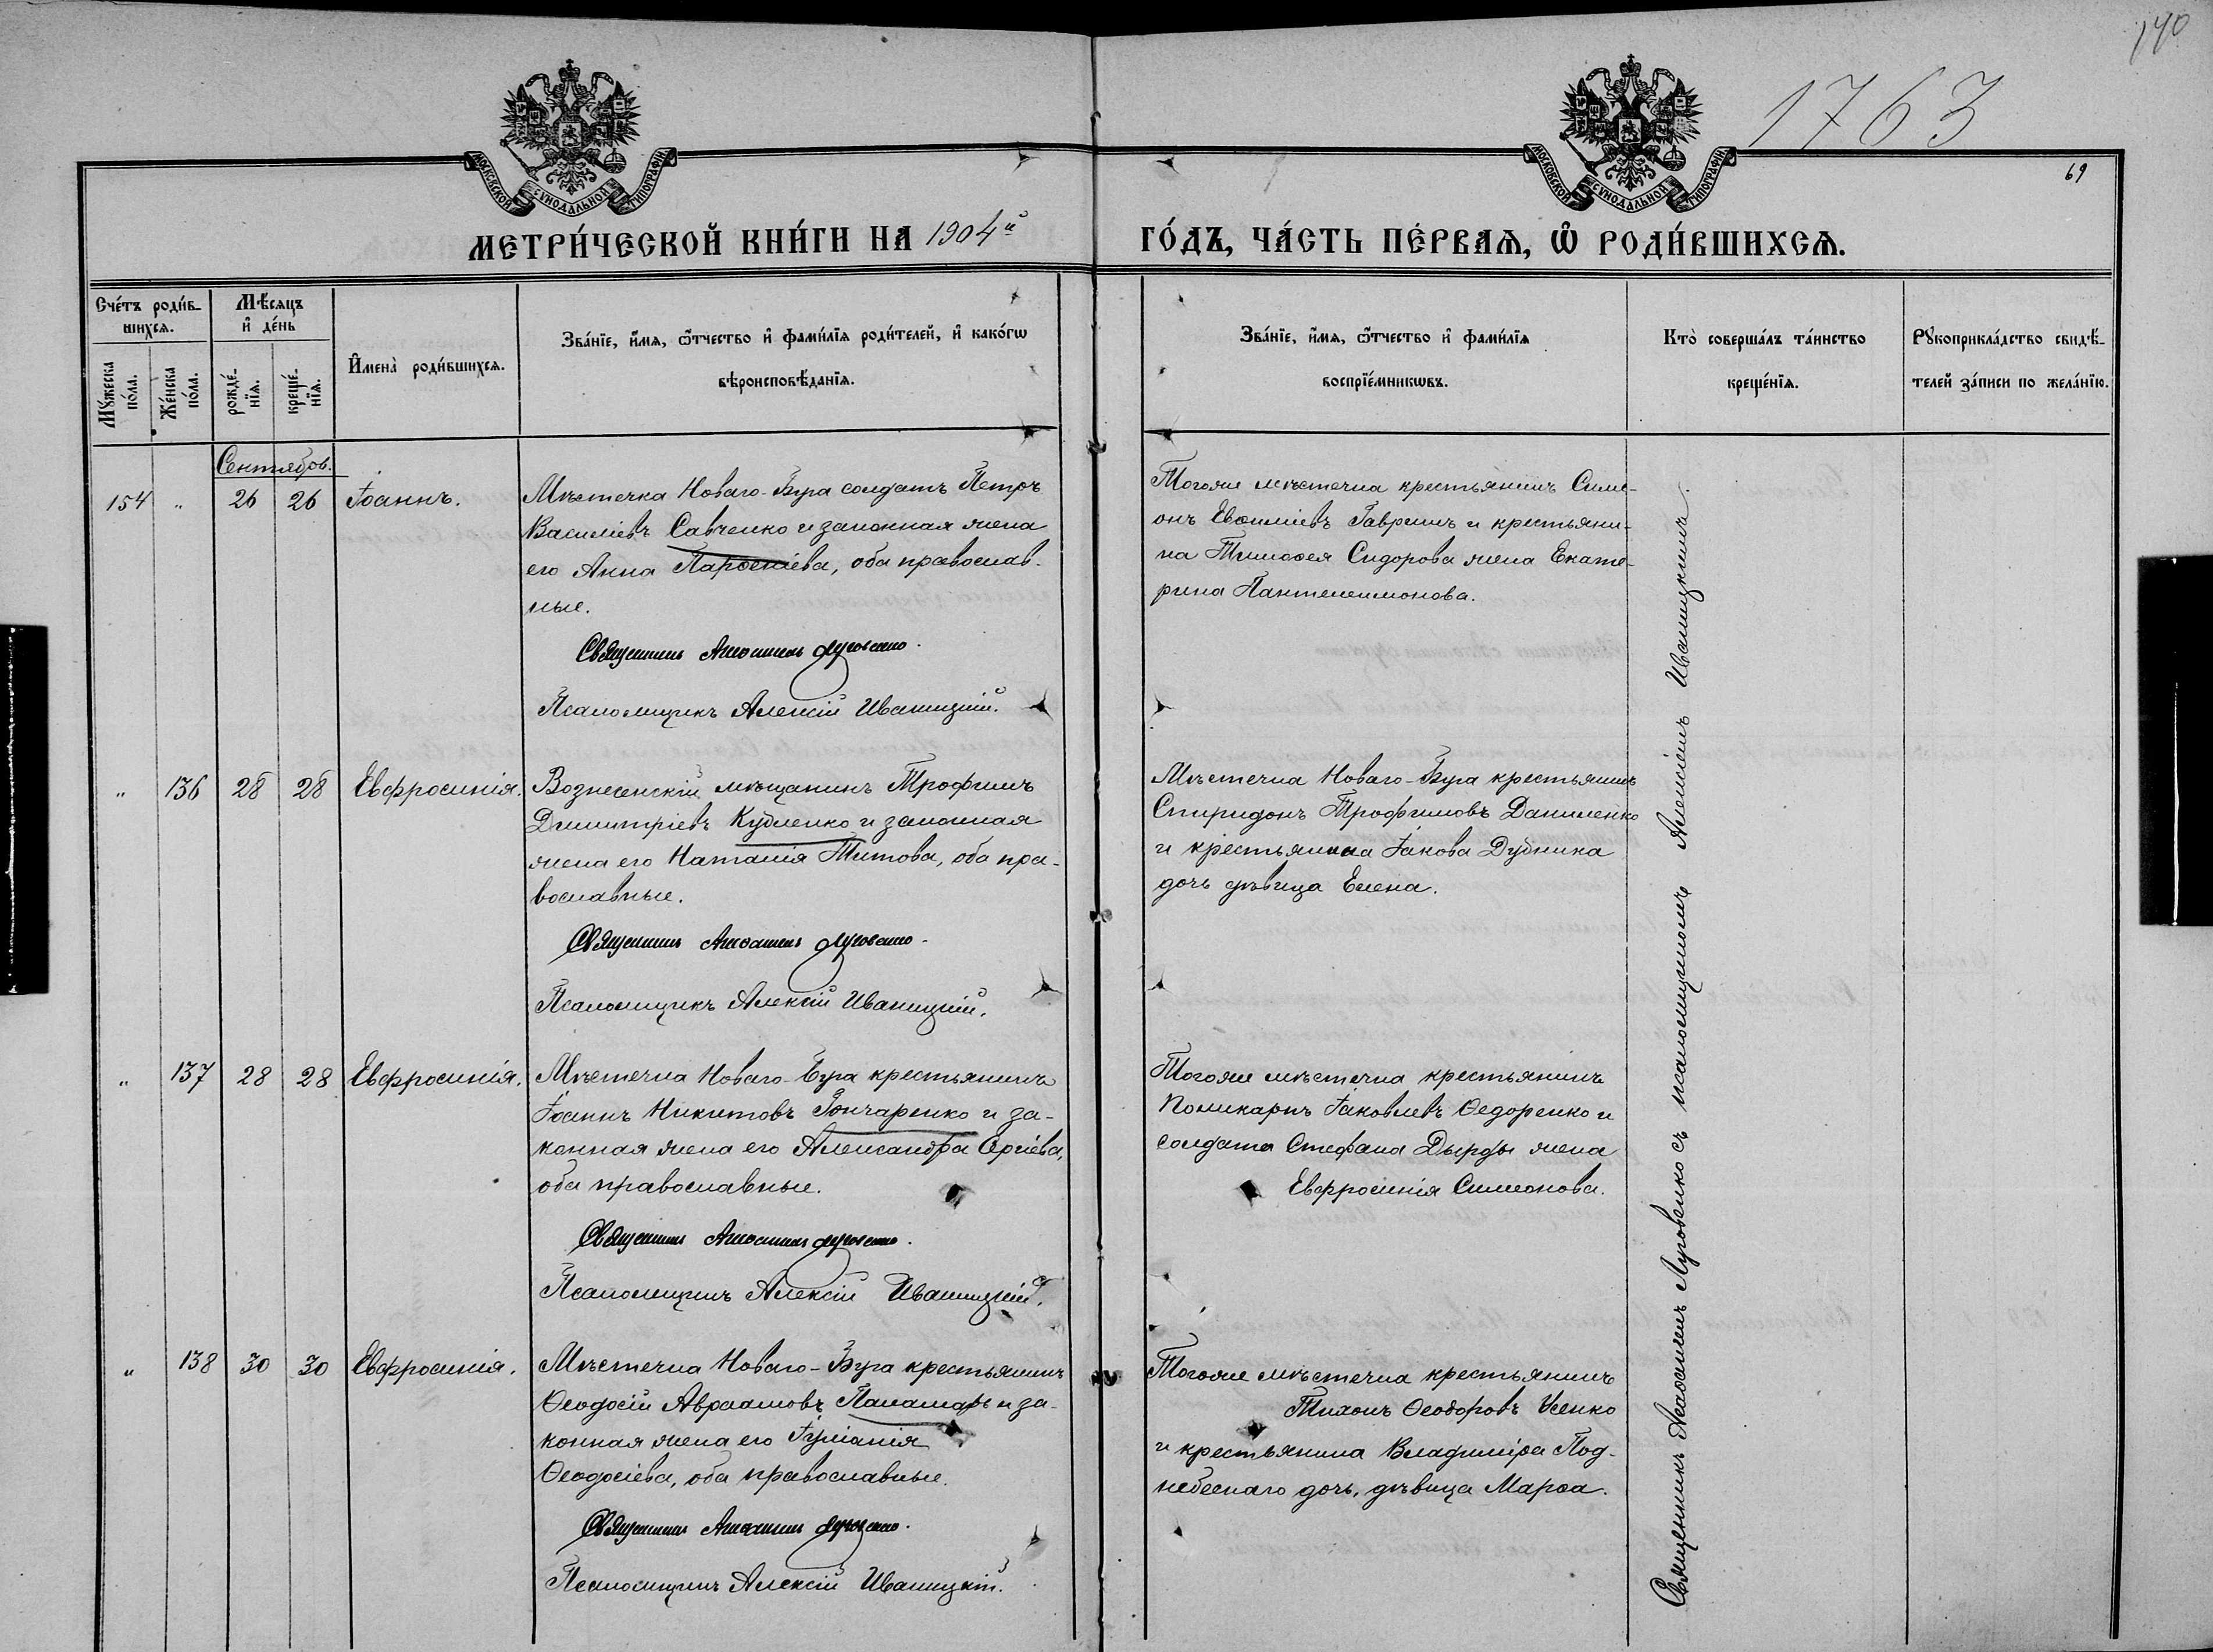 140
1763
69
МОСКОВСКОЙ СѴНОДАЛЬНОЙ ТИПОГРАФІИ
МОСКОВСКОЙ СѴНОДАЛЬНОЙ ТИПОГРАФІИ
МЕТРИ́ЧЕСКОЙ КНИ́ГИ НА 1904й ГО́ДЪ, ЧА́СТЬ ПЕ́РВАѦ, Ѡ҆ РОДИ́ВШИХСѦ.
Сче́тъ роди́в-
шихсѧ.
Мѣ́сяцъ
и҆ де́нь
Мꙋ́жеска
по́ла.
Же́нска
по́ла.
рожде́-
нїѧ.
креще́-
нїѧ.
И҆мена̀ роди́вшихсѧ.
Зва́нїе, и҆́мѧ, ѻ҆́тчество и҆ фамѝлїѧ роди́телей, и҆ како́гѡ
вѣроисповѣ́данїѧ.
Зва́нїе, и҆́мѧ, ѻ҆́тчество и҆ фамѝлїѧ
воспрїе́мникѡвъ.
Кто̀ соверша́лъ та́инство
креще́нїѧ.
Рꙋкоприкла́дство свидѣ́-
телей за́писи по жела́нїю.
Сентябрь.
154 " 26 26 Іоаннъ.
Мѣстечка Новаго-Буга солдатъ Петръ
Василіевъ Савченко и законная жена
его Анна Парѳеніева, оба православ-
ные.
Священникъ Анѳимъ Луговенко.
Псаломщикъ Алексій Иваницкій.
Тогоже мѣстечка крестьянинъ Симе-
онъ Евѳиміевъ Гавришъ и крестьяни-
на Тимоѳея Сидорова жена Екате-
рина Пантелеимонова.
" 136 28 28 Евфросинія.
Вознесенскій мѣщанинъ Трофимъ
Димитріевъ Кубленко и законная
жена его Наталія Титова, оба пра-
вославные.
Священникъ Луговенко.
Псаломщикъ Алексій Иваницкій.
Мѣстечка Новаго-Буга крестьянинъ
Спиридонъ Трофимовъ Даниленко
и крестьянина Іакова Дубника
дочь дѣвица Елена.
" 137 28 28 Евфросинія.
Мѣстечка Новаго-Буга крестьянинъ
Іоаннъ Никитовъ Гончаренко и за-
конная жена его Александра
оба православные.
Священникъ Луговенко.
Псаломщикъ Алексій Иваницкій.
Тогоже мѣстечка крестьянинъ
Поликарпъ Іаковлевъ Ѳедоренко и
солдата Стефана Дырды жена
Евфросинія Симеонова.
" 138 30 30 Евфросинія.
Мѣстечка Новаго-Буга крестьянинъ
Ѳеодосій Авраамовъ Паламарь и за-
конная жена его Іуліанія
Ѳеодосіева, оба православные.
Священникъ Луговенко.
Псаломщикъ Алексій Иваницкій.
Тогоже мѣстечка крестьянинъ
Тихонъ Ѳеодоровъ Усенко
и крестьянина Владиміра Под-
небеснаго дочь, дѣвица Марѳа.
Священникъ Луговенко съ псаломщикомъ Алексіемъ Иваницкимъ.